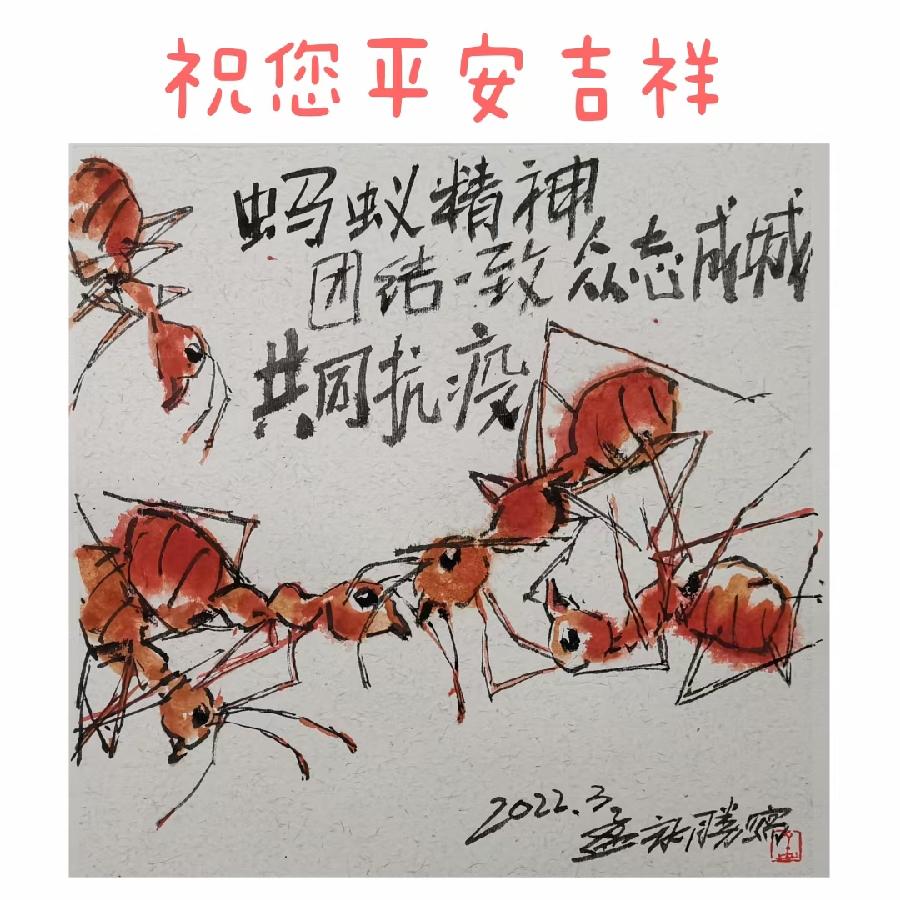 祝您平安吉祥
蚂蚁精神
团结一致众志成城
共同抗疫
2022.3